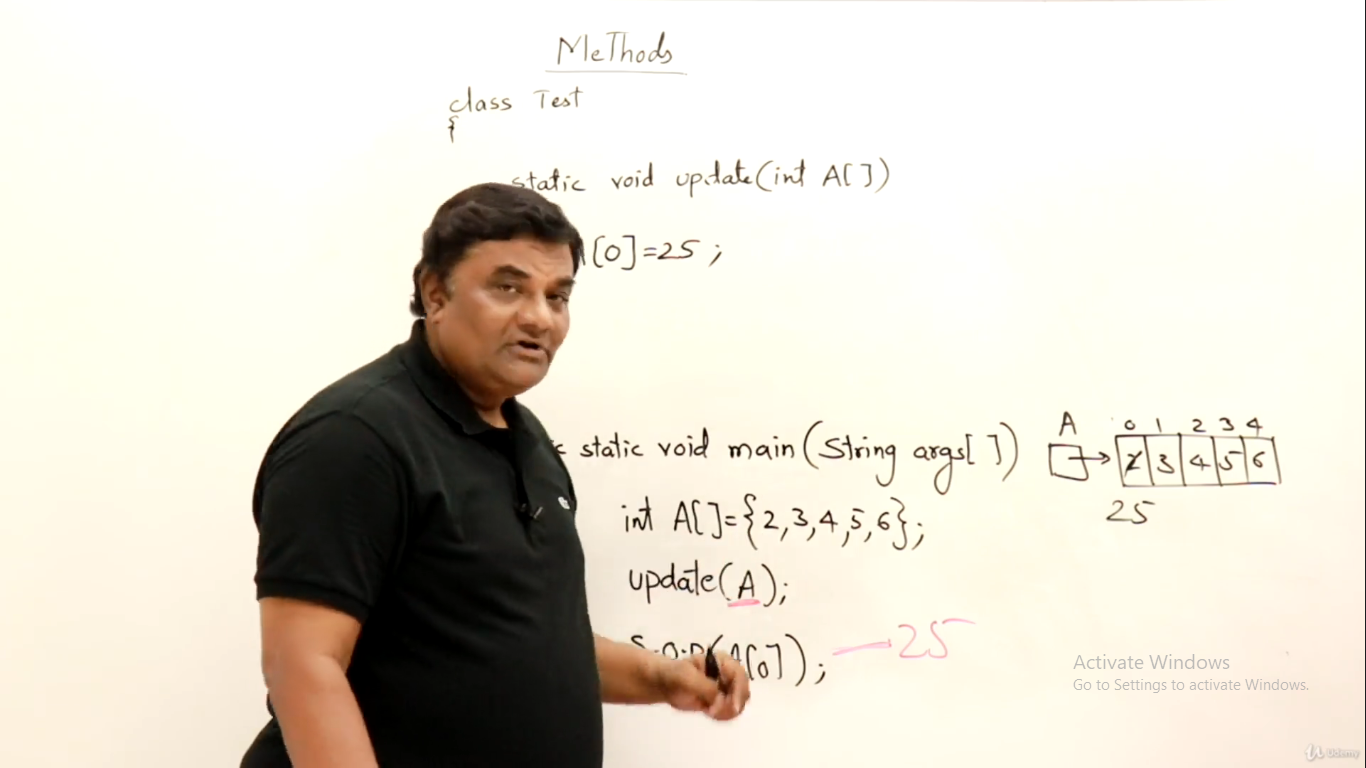 Methods
class Test
{
static void update(int A[])
[0]=25;
static void main(String args[])
int A[]={2,3,4,5,6};
update(A);
S.O.P(A[0]); — 25
A
0 1 2 3 4
2 3 4 5 6
25
Activate Windows
Go to Settings to activate Windows.
Udemy